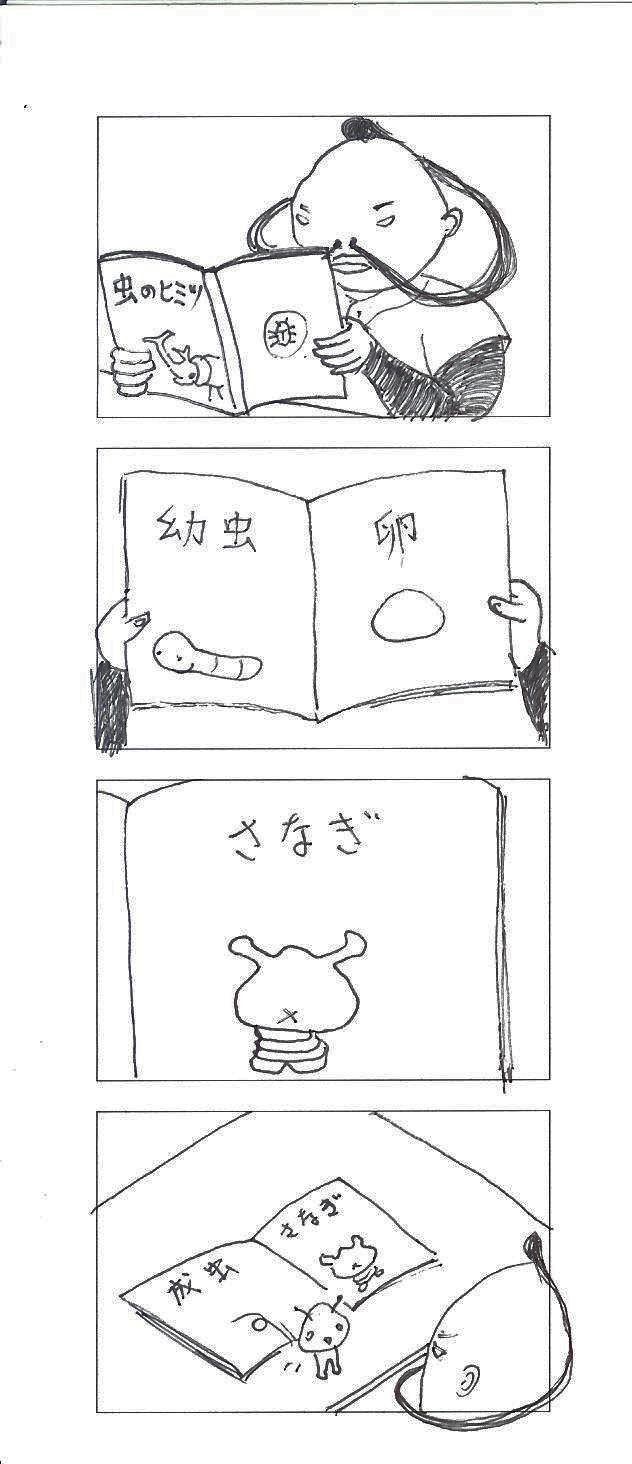 虫のヒミツ
卵
幼虫
さなぎ
さなぎ
成虫